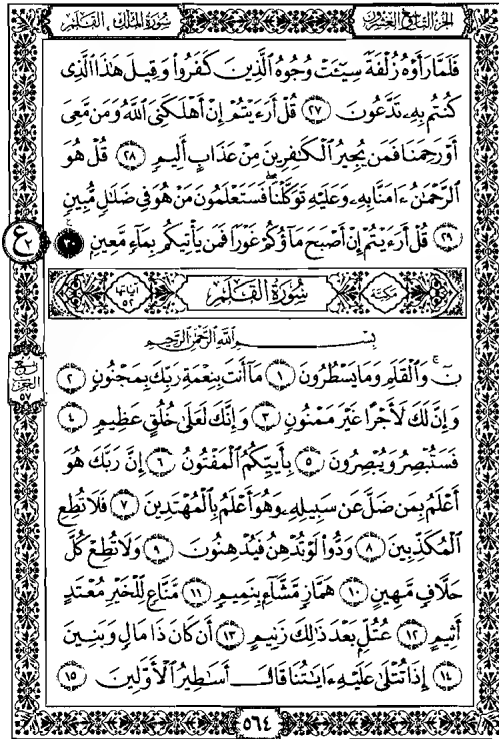 سُورَةُ المُلْكِ ، القَلَمِ
الجُزءُ التَّاسِعُ وَالعِشرُونَ
فَلَمَّا رَأَوْهُ زُلْفَةً سِيٓـَٔتْ وُجُوهُ ٱلَّذِينَ كَفَرُوا۟ وَقِيلَ هَٰذَا ٱلَّذِى
كُنتُم بِهِۦ تَدَّعُونَ ٢٧ قُلْ أَرَءَيْتُمْ إِنْ أَهْلَكَنِىَ ٱللَّهُ وَمَن مَّعِىَ
أَوْ رَحِمَنَا فَمَن يُجِيرُ ٱلْكَٰفِرِينَ مِنْ عَذَابٍ أَلِيمٍ ٢٨ قُلْ هُوَ
ٱلرَّحْمَٰنُ ءَامَنَّا بِهِۦ وَعَلَيْهِ تَوَكَّلْنَا ۖ فَسَتَعْلَمُونَ مَنْ هُوَ فِى ضَلَٰلٍ مُّبِينٍ
٢٩ قُلْ أَرَءَيْتُمْ إِنْ أَصْبَحَ مَآؤُكُمْ غَوْرًا فَمَن يَأْتِيكُم بِمَآءٍ مَّعِينٍۭ ٣٠
ع ٢
مكيّة سُورَةُ القَلَمِ آياتها ٥٢
بِسْمِ ٱللَّهِ ٱلرَّحْمَٰنِ ٱلرَّحِيمِ
نٓ ۚ وَٱلْقَلَمِ وَمَا يَسْطُرُونَ ١ مَآ أَنتَ بِنِعْمَةِ رَبِّكَ بِمَجْنُونٍ ٢
رُبع
الحزب
٥٧
وَإِنَّ لَكَ لَأَجْرًا غَيْرَ مَمْنُونٍ ٣ وَإِنَّكَ لَعَلَىٰ خُلُقٍ عَظِيمٍ ٤
فَسَتُبْصِرُ وَيُبْصِرُونَ ٥ بِأَييِّكُمُ ٱلْمَفْتُونُ ٦ إِنَّ رَبَّكَ هُوَ
أَعْلَمُ بِمَن ضَلَّ عَن سَبِيلِهِۦ وَهُوَ أَعْلَمُ بِٱلْمُهْتَدِينَ ٧ فَلَا تُطِعِ
ٱلْمُكَذِّبِينَ ٨ وَدُّوا۟ لَوْ تُدْهِنُ فَيُدْهِنُونَ ٩ وَلَا تُطِعْ كُلَّ
حَلَّافٍ مَّهِينٍ ١٠ هَمَّازٍ مَّشَّآءٍۭ بِنَمِيمٍ ١١ مَّنَّاعٍ لِّلْخَيْرِ مُعْتَدٍ
أَثِيمٍ ١٢ عُتُلٍّۭ بَعْدَ ذَٰلِكَ زَنِيمٍ ١٣ أَن كَانَ ذَا مَالٍ وَبَنِينَ
١٤ إِذَا تُتْلَىٰ عَلَيْهِ ءَايَٰتُنَا قَالَ أَسَٰطِيرُ ٱلْأَوَّلِينَ ١٥
٥٦٤